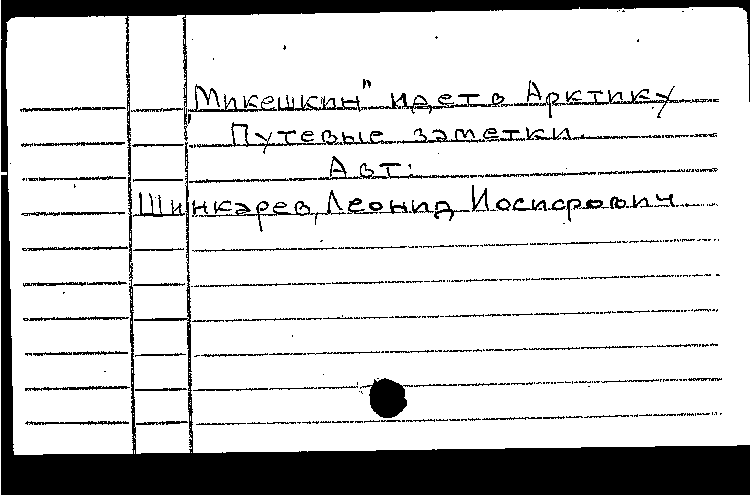 "Микешкин" идет в Арктику
Путевые заметки.
Авт:
Шинкарев, Леонид Иосифович.